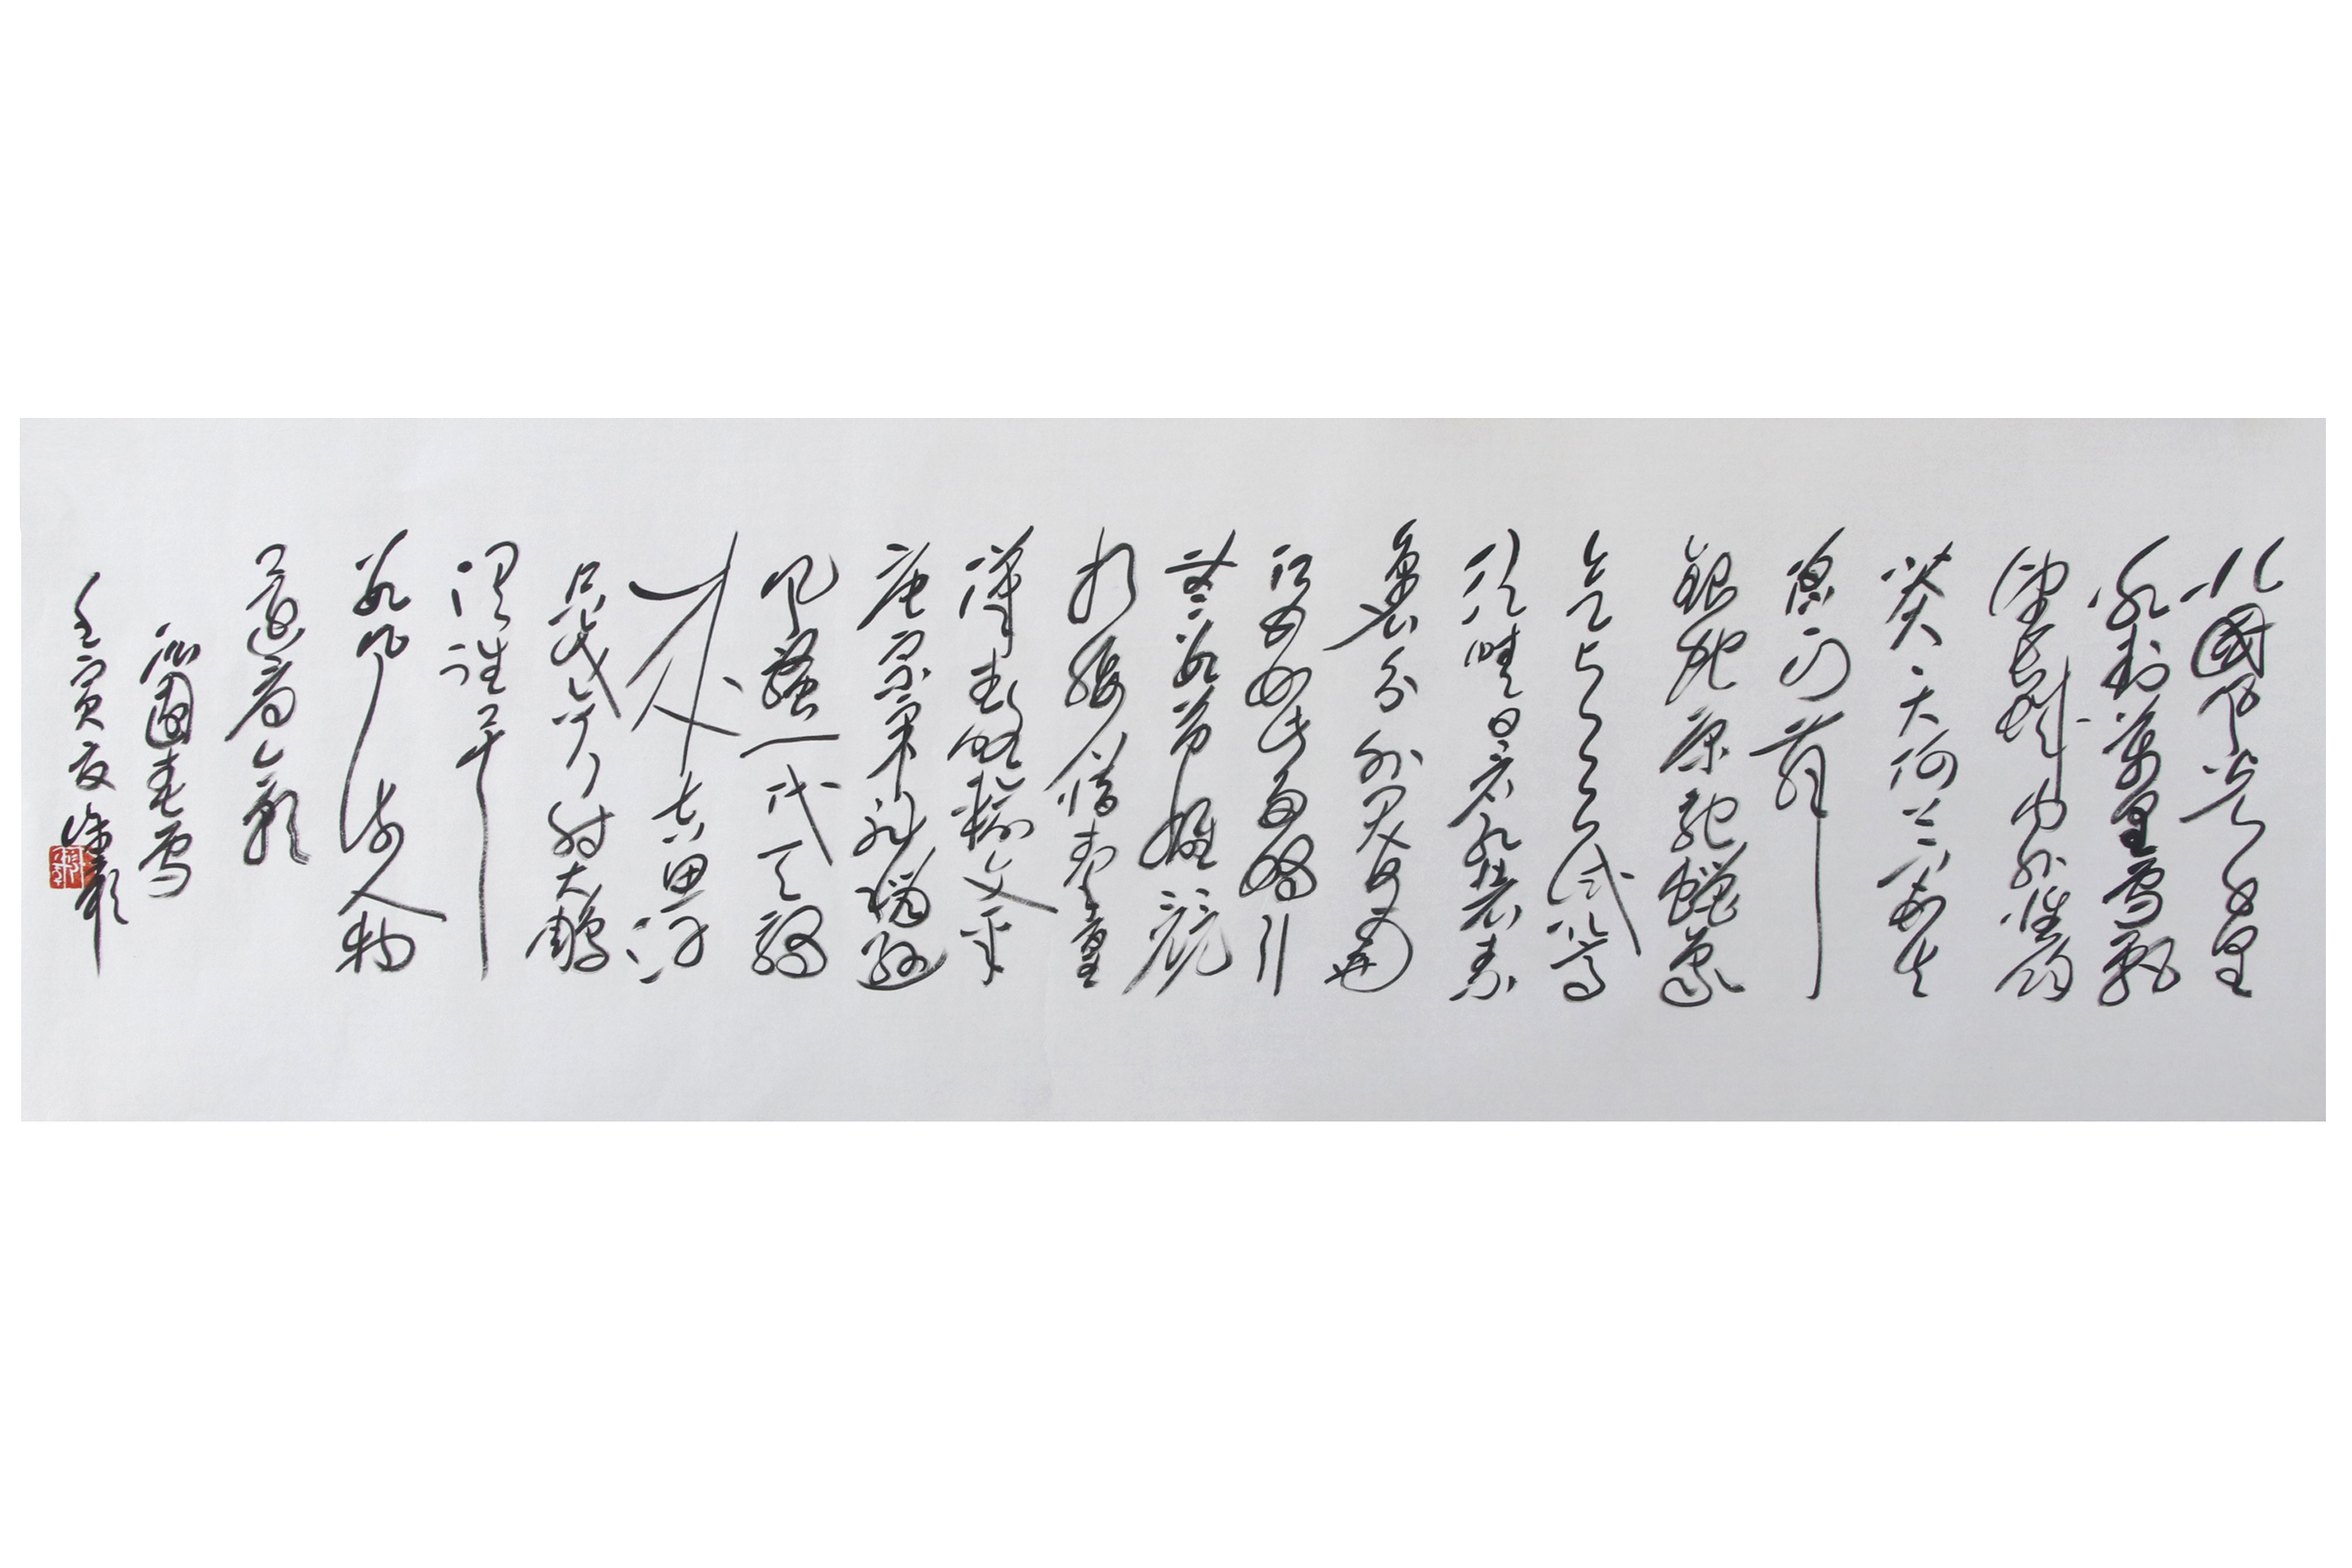 北國風光千里
冰封萬里雪飄
望長城内外惟餘
莽莽大河上下頓失
滔滔山舞
銀蛇原馳蠟象
欲與天公試比高
須晴日看紅裝素
裹分外妖嬈
江山如此多嬌引
無數英雄競
折腰惜秦皇
漢武略輸文采
唐宗宋祖稍遜
風騷一代天驕
成吉思汗
只識彎弓射大雕
俱往矣
數風流人物
還看今朝
沁園春雪
壬寅夏